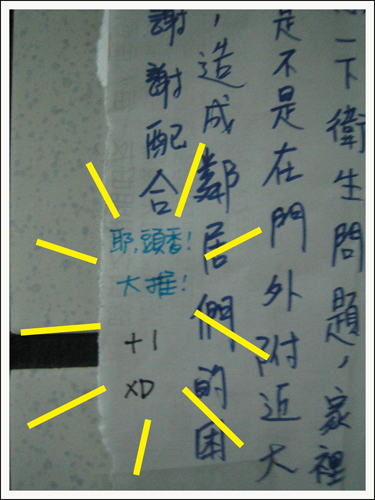 一下衛生問題，家裡
是不是在門外附近大
，造成鄰居們的困
謝謝配合
耶,頭香!
大推!
+1
XD